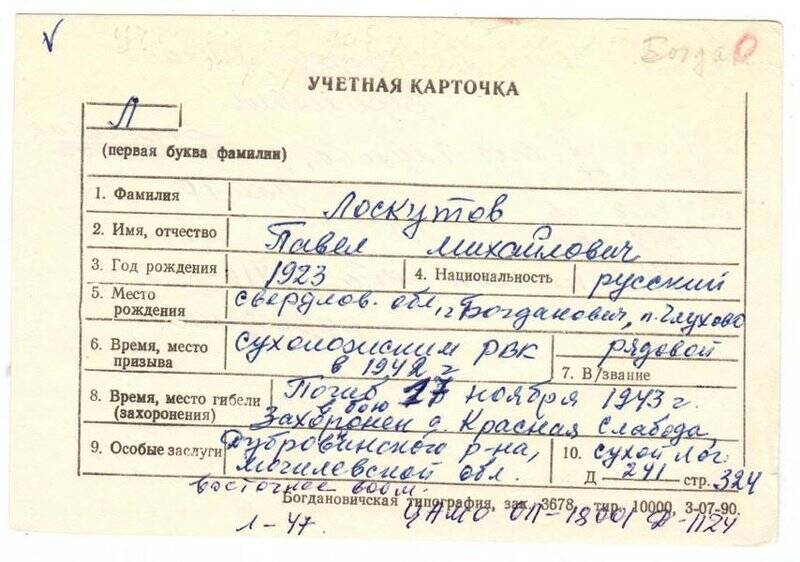 Богда
УЧЕТНАЯ КАРТОЧКА
Л
(первая буква фамилии)
1. Фамилия Лоскутов
2. Имя, отчество Павел Михайлович
3. Год рождения 1923 4. Национальность русский
5. Место рождения свердлов. обл, г Богданович, п. Глухово
6. Время, место призыва сухоложским РВК в 1942 г
рядовой
7. В/звание
8. Время, место гибели (захоронения) Погиб в бою 17 ноября 1943 г.
Захоронен д. Красная Слобода,
9. Особые заслуги Дубровинского р-на,
Могилевской обл.
10. сухой Лог
Д 241 стр. 324
восточнее
Богдановичская типография, зак. 3678, тир. 10000, 3-07-90.
Л-47. ЦАМО ОП-18001 Д-1124